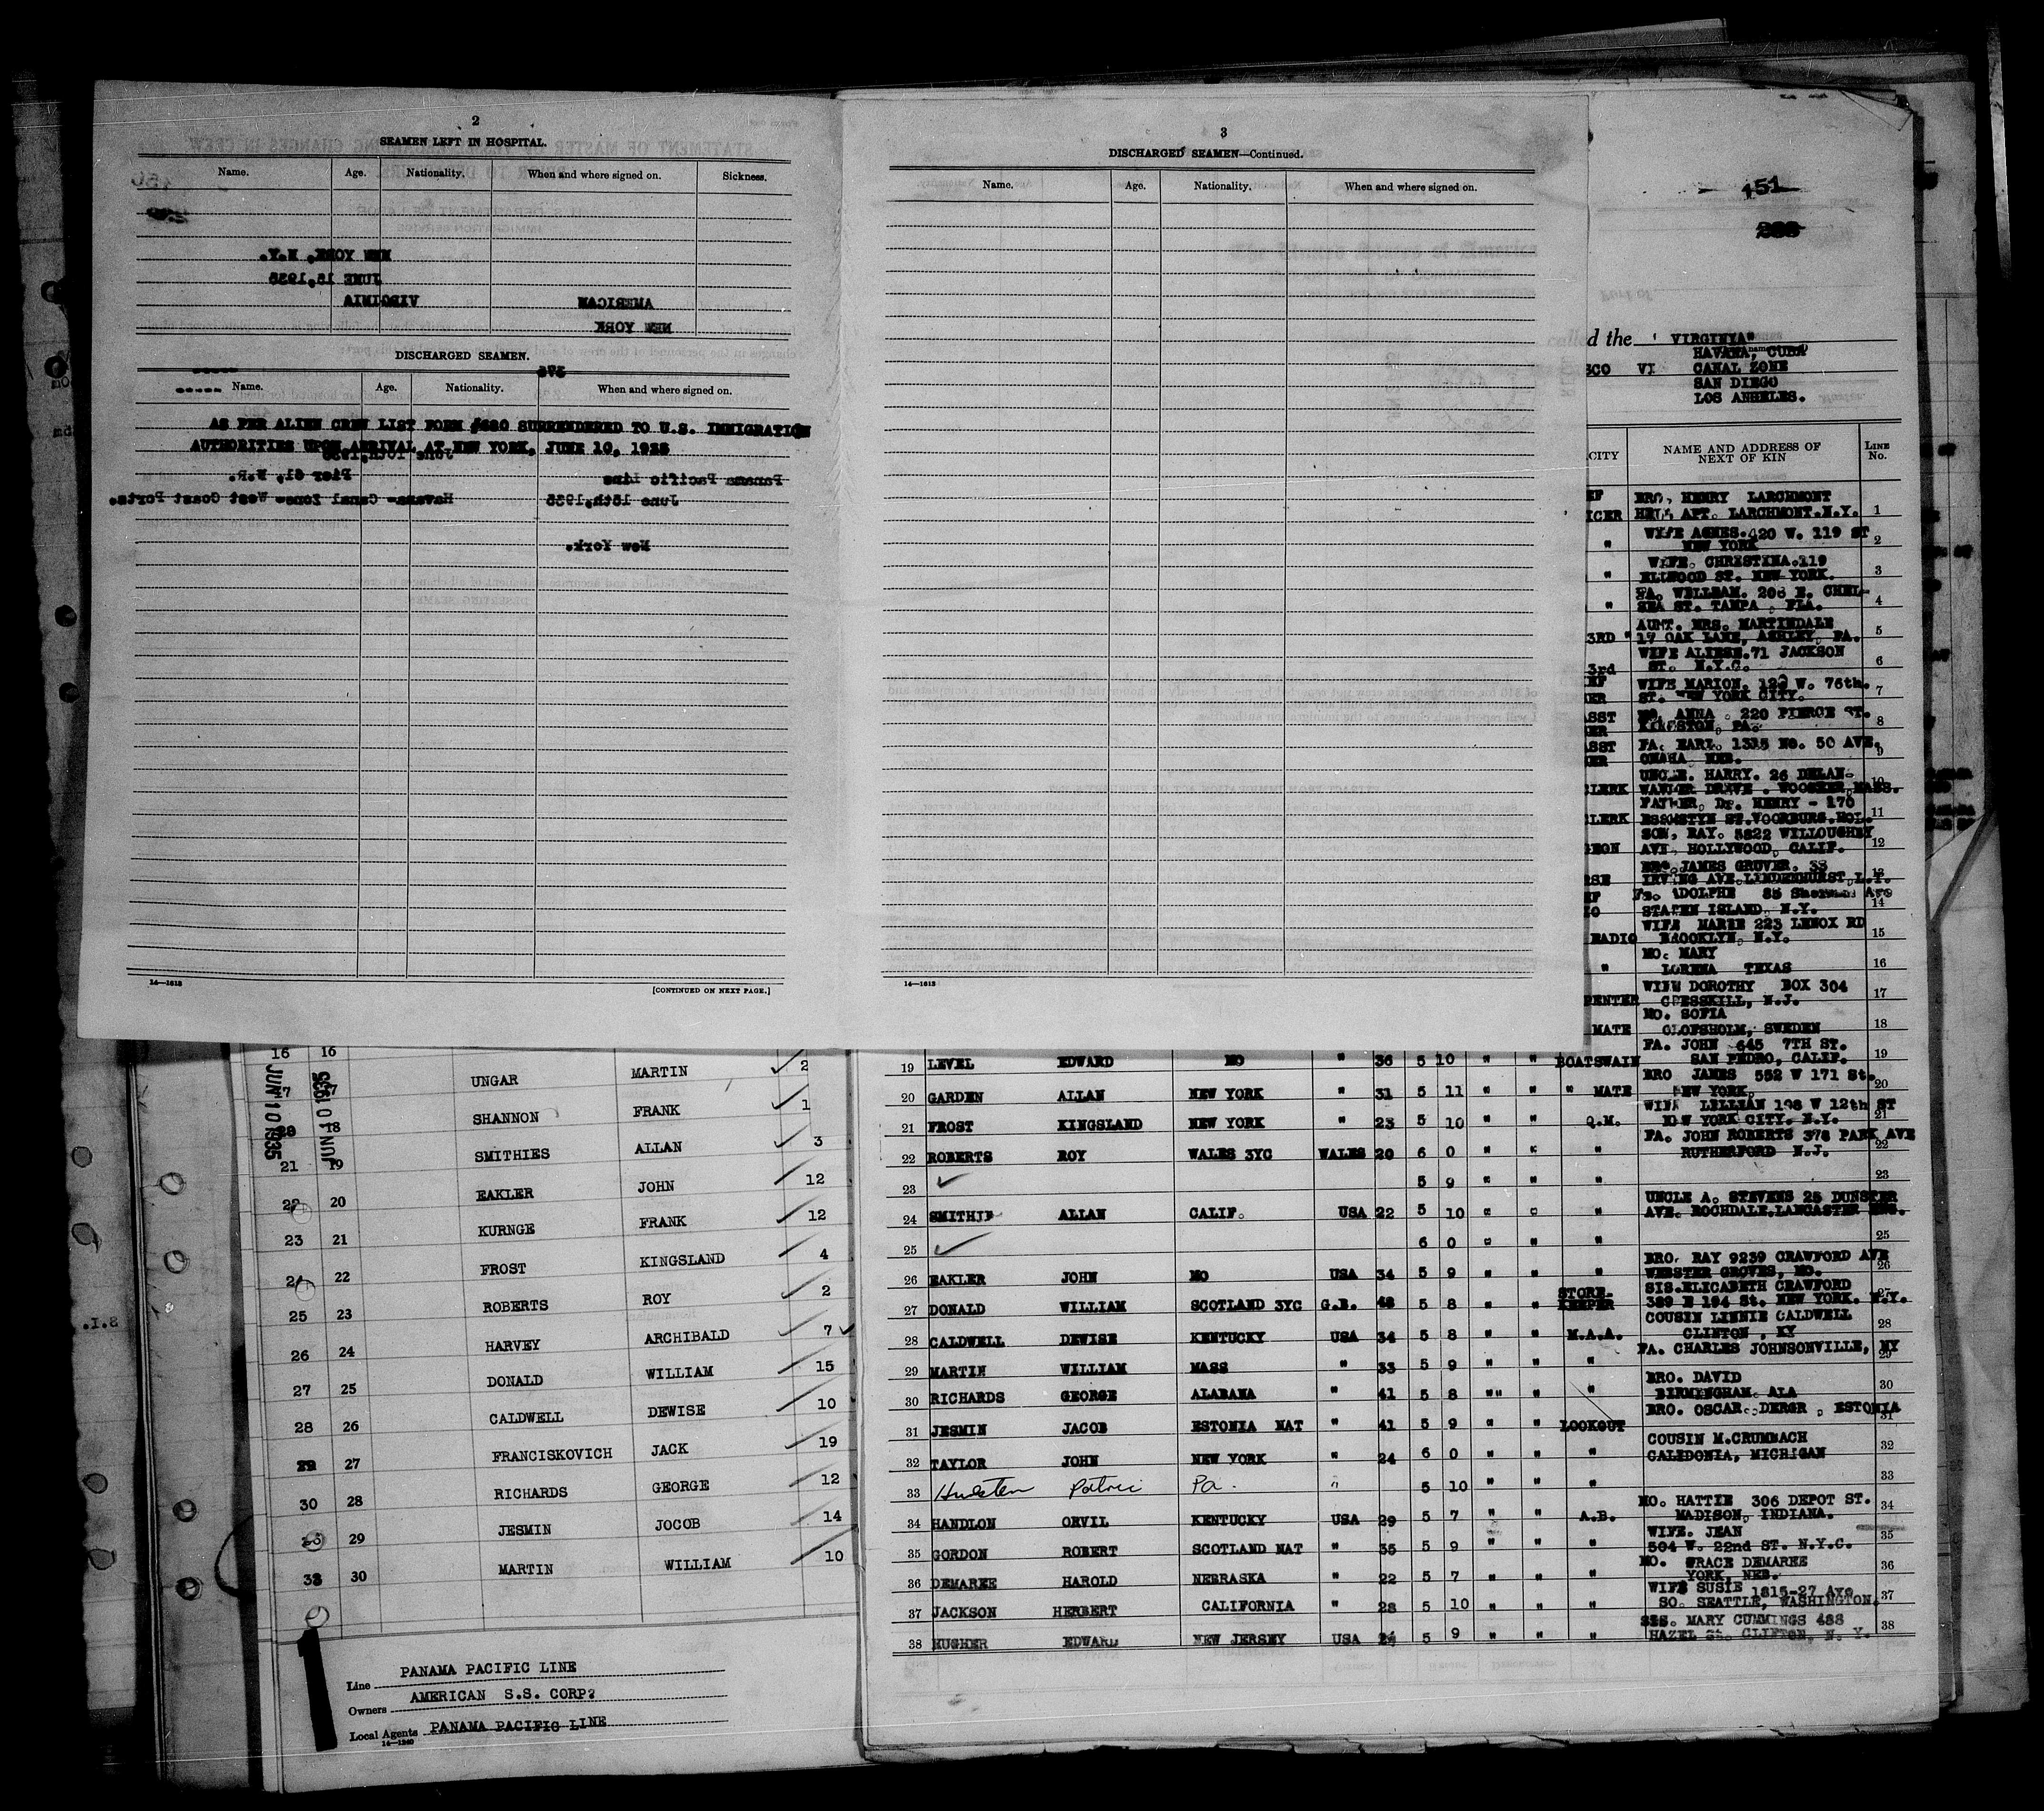 2
SEAMEN LEFT IN HOSPITAL.
Name. Age. Nationality. When and where signed on. Sickness.
NEW YORK, N.Y.
JUNE 15, 1935
VIRGINIA AMERICAN
NEW YORK
DISCHARGED SEAMEN.
376
Name. Age. Nationality. When and where signed on.
AS PER ALIEN CREW LIST FORM #680 SURRENDERED TO U.S. IMMIGRATION
AUTHORITIES UPON ARRIVAL AT NEW YORK, JUNE 10, 1935
June 10th, 1935
Pier 61, N.R. Panama Pacific Line
Havana- Canal Zone- West Coast Ports. June 15th, 1935
New York.
14—1613 [CONTINUED ON NEXT PAGE.]
3
DISCHARGED SEAMEN—Continued.
Name. Age. Nationality. When and where signed on.
14—1613
151
called the "VIRGINIA"
HAVANA, CUBA
SCO VI CANAL ZONE
SAN DIEGO
LOS ANGELES.
CITY NAME AND ADDRESS OF NEXT OF KIN LINE No.
EF BRO. HENRY LARCHMONT
ICER APT. LARCHMONT.N.Y. 1
" WIFE AGNES.420 W. 119 ST
NEW YORK 2
" WIFE. CHRISTINA.119
ELLWOOD ST. NEW YORK. 3
" FA. WILLIAM. 208 E. CHEL-
SEA ST. TAMPA, FLA. 4
AUNT. MRS. MARTINDALE
3RD " 17 OAK LANE, ASHLEY, PA. 5
WIFE ALIESE.71 JACKSON
3rd ST. N.Y.C. 6
EF WIFE MARION. 122 W. 76th.
ER ST. NEW YORK CITY. 7
ASST MO. ANNA. 220 PIERCE ST.
ER KINGSTON, PA. 8
ASST FA. EARL. 1315 NO. 50 AVE.
ER OMAHA NEB. 9
UNCLE. HARRY. 26 DELAN-
CLERK DRIVE. WOOSTER, MASS. 10
FATHER, Dr. HENRY - 170
CLERK ST.VOORBURG.HOL. 11
SON, RAY. 5822 WILLOUGHBY
GEON AVE. HOLLYWOOD, CALIF. 12
BRO. JAMES GRUVER. 33
RSE IRVING AVE.LINDENHURST,L.I. 13
EF Fa. ADOLPHE 85 Sherman Ave
IO STATEN ISLAND, N.Y. 14
WIFE MARIE 223 LENOX RD
RADIO BROOKLYN, N.Y. 15
MO. MARY
" LORENA TEXAS 16
WIFE DOROTHY BOX 304
PENTER CRESSKILL, N.J. 17
MO. SOFIA
MATE OLOFSHOLM, SWEDEN 18
FA. JOHN 645 7TH ST.
19 LEVEL EDWARD MO " 36 5 10 " " BOATSWAIN SAN PEDRO, CALIF. 19
BRO JAMES 552 W 171 St.
20 GARDEN ALLAN NEW YORK " 31 5 11 " " " MATE NEW YORK, 20
WIFE LILLIAN 108 W 12th ST
21 FROST KINGSLAND NEW YORK " 23 5 10 " " Q.M. NEW YORK CITY. N.Y. 21
FA. JOHN ROBERTS 378 PARK AVE
22 ROBERTS ROY WALES 3YC WALES 20 6 0 " " " RUTHERFORD N.J. 22
23 5 9 " " " 23
UNCLE A. STEVENS 25 DUNSTER
24 SMITHIE ALLAN CALIF. USA 22 5 10 " " " AVE. ROCHDALE.LANCASTER ENG.
25 6 0 " " " 25
BRO. RAY 9239 CRAWFORD AVE
26 EAKLER JOHN MO USA 34 5 9 " " " WEBSTER GROVES, MO. 26
SIS.ELICABETH CRAWFORD
27 DONALD WILLIAM SCOTLAND 3YC G.B. 48 5 8 " " STORE-KEEPER 389 E 194 St. NEW YORK. N.Y. 27
COUSIN LINNIE CALDWELL
28 CALDWELL DEWISE KENTUCKY USA 34 5 8 " " M.A.A. CLIFTON, KY 28
29 MARTIN WILLIAM MASS " 33 5 9 " " " FA. CHARLES JOHNSONVILLE, NY 29
BRO. DAVID
30 RICHARDS GEORGE ALABAMA " 41 5 8 "" " " BIRMINGHAM. ALA 30
31 JESMIN JACOB ESTONIA NAT " 41 5 9 " " LOOKOUT BRO. OSCAR. DERGR, ESTONIA 31
COUSIN M.CRUMMACH
32 TAYLOR JOHN NEW YORK " 24 6 0 " " " CALEDONIA, MICHIGAN 32
33 Pa. " 5 10 " " " 33
MO. HATTIE 306 DEPOT ST.
34 HANDLON ORVIL KENTUCKY USA 29 5 7 " " A.B. MADISON, INDIANA. 34
WIFE. JEAN
35 GORDON ROBERT SCOTLAND NAT " 35 5 9 " " " 504 W. 22nd ST. N.Y.C. 35
MO. GRACE DEMAREE
36 DEMAREE HAROLD NEBRASKA " 22 5 7 " " " YORK, NEB. 36
WIFE SUSIE 1815-27 Ave
37 JACKSON HERBERT CALIFORNIA " 28 5 10 " " " SO. SEATTLE, WASHINGTON. 37
SIS. MARY CUMMINGS 488
38 HUGHER EDWARD NEW JERSEY USA 24 5 9 " " " HAZEL St. CLIFTON, N. Y. 38
JUN 10 1935
JUN 10 1935
16 16 UNGAR MARTIN 2
17 17 SHANNON FRANK 1
20 18 SMITHIES ALLAN 3
21 19 EAKLER JOHN 12
22 20 KURNGE FRANK 12
23 21 FROST KINGSLAND 4
24 22 ROBERTS ROY 2
25 23 HARVEY ARCHIBALD 7
26 24 DONALD WILLIAM 15
27 25 CALDWELL DEWISE 10
28 26 FRANCISKOVICH JACK 19
29 27 RICHARDS GEORGE 12
30 28 JESMIN JOCOB 14
29 MARTIN WILLIAM 10
33 30
Line PANAMA PACIFIC LINE
Owners AMERICAN S.S. CORP?
Local Agents PANAMA PACIFIC LINE
14—1240